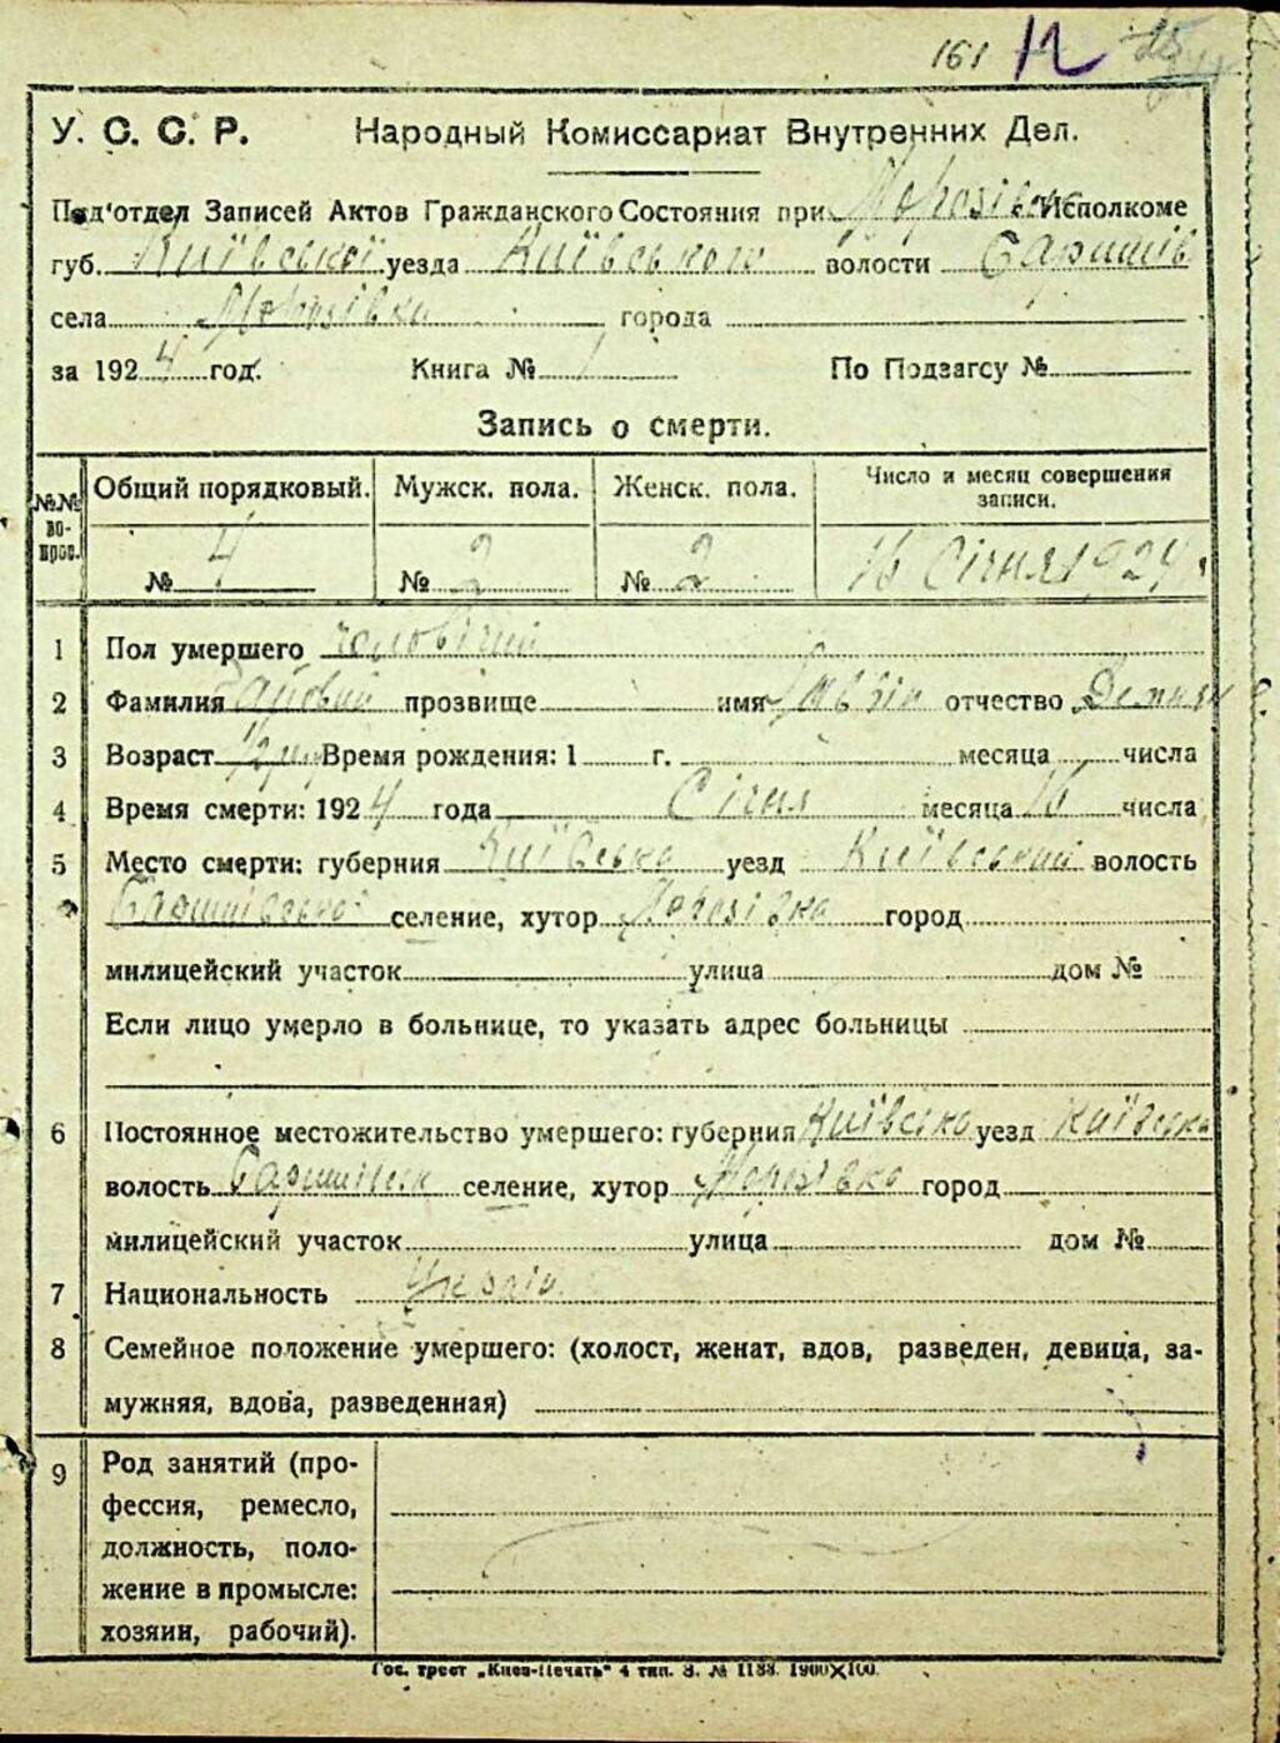 161 12
У. С. С. Р. Народный Комиссариат Внутренних Дел.
Под'отдел Записей Актов Гражданского Состояния при Исполкоме
губ. Київської уезда Київського волости
села Морозівка города
за 1924 год. Книга № 1 По Подзагсу №
Запись о смерти.
№№ вопрос. Общий порядковый. Мужск. пола. Женск. пола. Число и месяц совершения записи.
№ 4 № 2 № 2 16 Січня 1924 г.
1 Пол умершего чоловічий
2 Фамилия прозвище имя отчество Демян
3 Возраст 1/2 Время рождения: 1 г. месяца числа
4 Время смерти: 1924 года Січня месяца 16 числа
5 Место смерти: губерния Київська уезд Київський волость
селение, хутор Морозівка город
милицейский участок улица дом №
Если лицо умерло в больнице, то указать адрес больницы
6 Постоянное местожительство умершего: губерния Київська уезд Київськ
волость селение, хутор Морозівка город
милицейский участок улица дом №
7 Национальность Україн
8 Семейное положение умершего: (холост, женат, вдов, разведен, девица, за-
мужняя, вдова, разведенная)
9 Род занятий (про-
фессия, ремесло,
должность, поло-
жение в промысле:
хозяин, рабочий).
Гос. трест „Киев-Печать" 4 тип. З. № 1188. 1900X100.